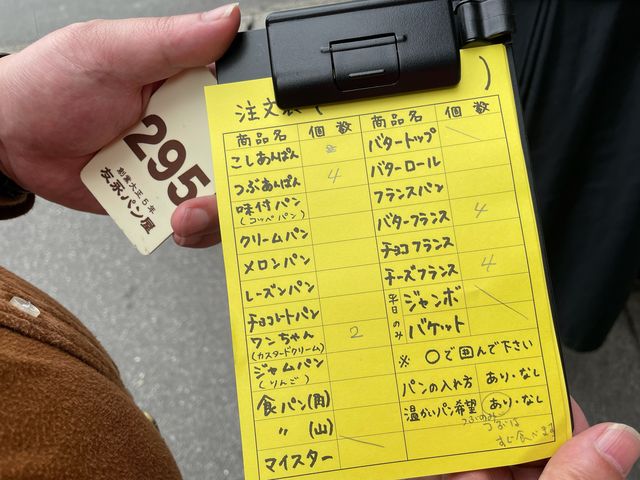 295
創業大正5年
友永パン屋
注文表（ ）
商品名 個数 商品名 個数
こしあんぱん 2 バタートップ
つぶあんぱん 4 バターロール
味付パン
(コッペパン)
フランスパン
クリームパン バターフランス 4
メロンパン チョコフランス
レーズンパン チーズフランス 4
チョコレートパン 平日のみ ジャンボ
ワンちゃん 2 バケット
(カスタードクリーム)
ジャムパン
(りんご)
※ ○で囲んで下さい
食パン(角) パンの入れ方 あり・なし
〃 (山) 温かいパン希望 あり・なし
マイスター
つぶのみ
つぶは
すぐ食べます